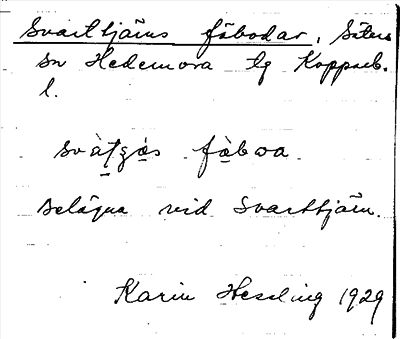 Svarttjärns fäbodar, Säters
sn Hedemora tg Kopparb.
l.
fàboa
belägna vid Svarttjärn.
Karin Hessling 1929